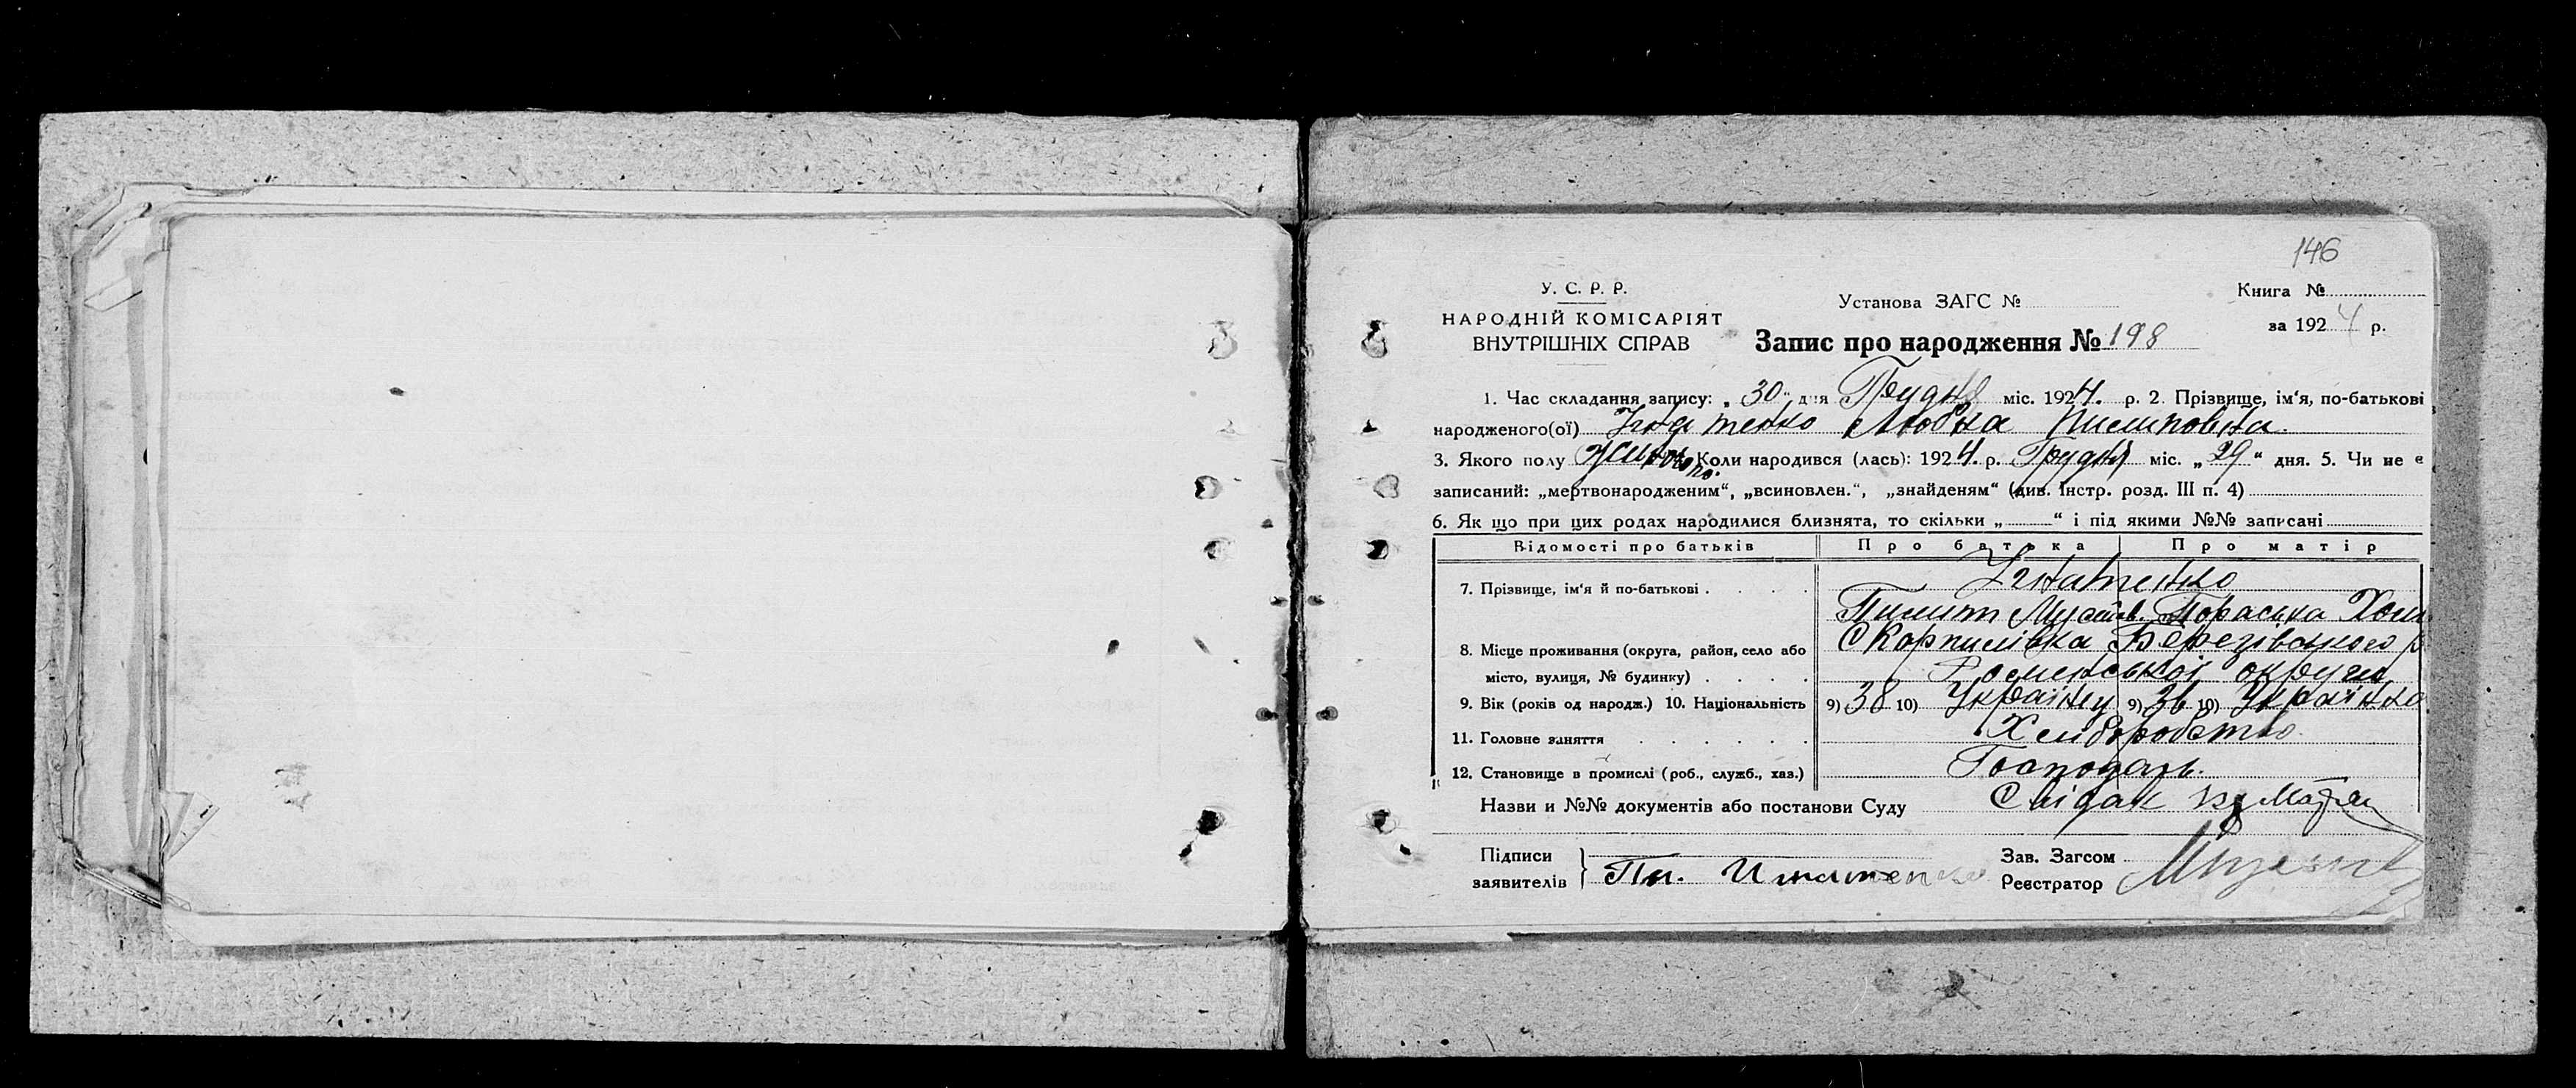 146
У. С. Р. Р.
НАРОДНІЙ КОМІСАРІЯТ
ВНУТРІШНІХ СПРАВ
Установа ЗАГС №
Книга №
за 1924 р.
Запис про народження № 198
1. Час складання запису: „30“ дня Грудня міс. 1924. р. 2. Прізвище, ім'я, по-батькові
народженого(ої) Ігнатенко Любка Пилиповна.
3. Якого полу Жиночого. Коли народився (лась): 1924. р. Грудня міс. „29“ дня. 5. Чи не є
записаний: „мертвонародженим“, „всиновлен.“, „знайденям“ (див. Інстр. розд. III п. 4)
6. Як що при цих родах народилися близнята, то скільки „ “ і під якими №№ записані
Відомості про батьків Про батька Про матір
7. Прізвище, ім'я й по-батькові Ігнатенко
Пилип Мусійов. Параська Хом
8. Місце проживання (округа, район, село або С Карпилівка Березівського р
місто, вулиця, № будинку) Роменської округи
9. Вік (років од народж.) 10. Національність 9) 38 10) Українец 9) 36 10) Українка.
11. Головне заняття Хліборобство.
12. Становище в промислі (роб., служб., хаз.) Господарь.
Назви и №№ документів або постанови Суду
Підписи
заявителів Пи. Игнатенко
Зав. Загсом
Реєстратор